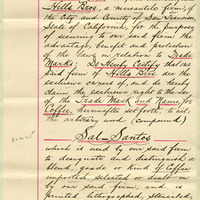 Hills Bros, a mercantile firm, of
the City and County of San Francisco,
State of California, for the purpose
of securing to our said firm the
advantage, benefit and protection
of the laws in relation to Trade
Marks; Do Hereby Certify that we
said firm of Hills Bros. are the
exclusive owners of, and do hereby
claim the exclusive right to the use
of the Trade Mark and Name, for
Coffee, hereinafter set forth,
the arbitrary word (compound)
Sal-Santos
which is used by our said firm
to designate and distinguish a
blend, grade or kind of Coffee
imported, selected or dealt in
by our said firm, and is
printed, lithographed, stenciled,